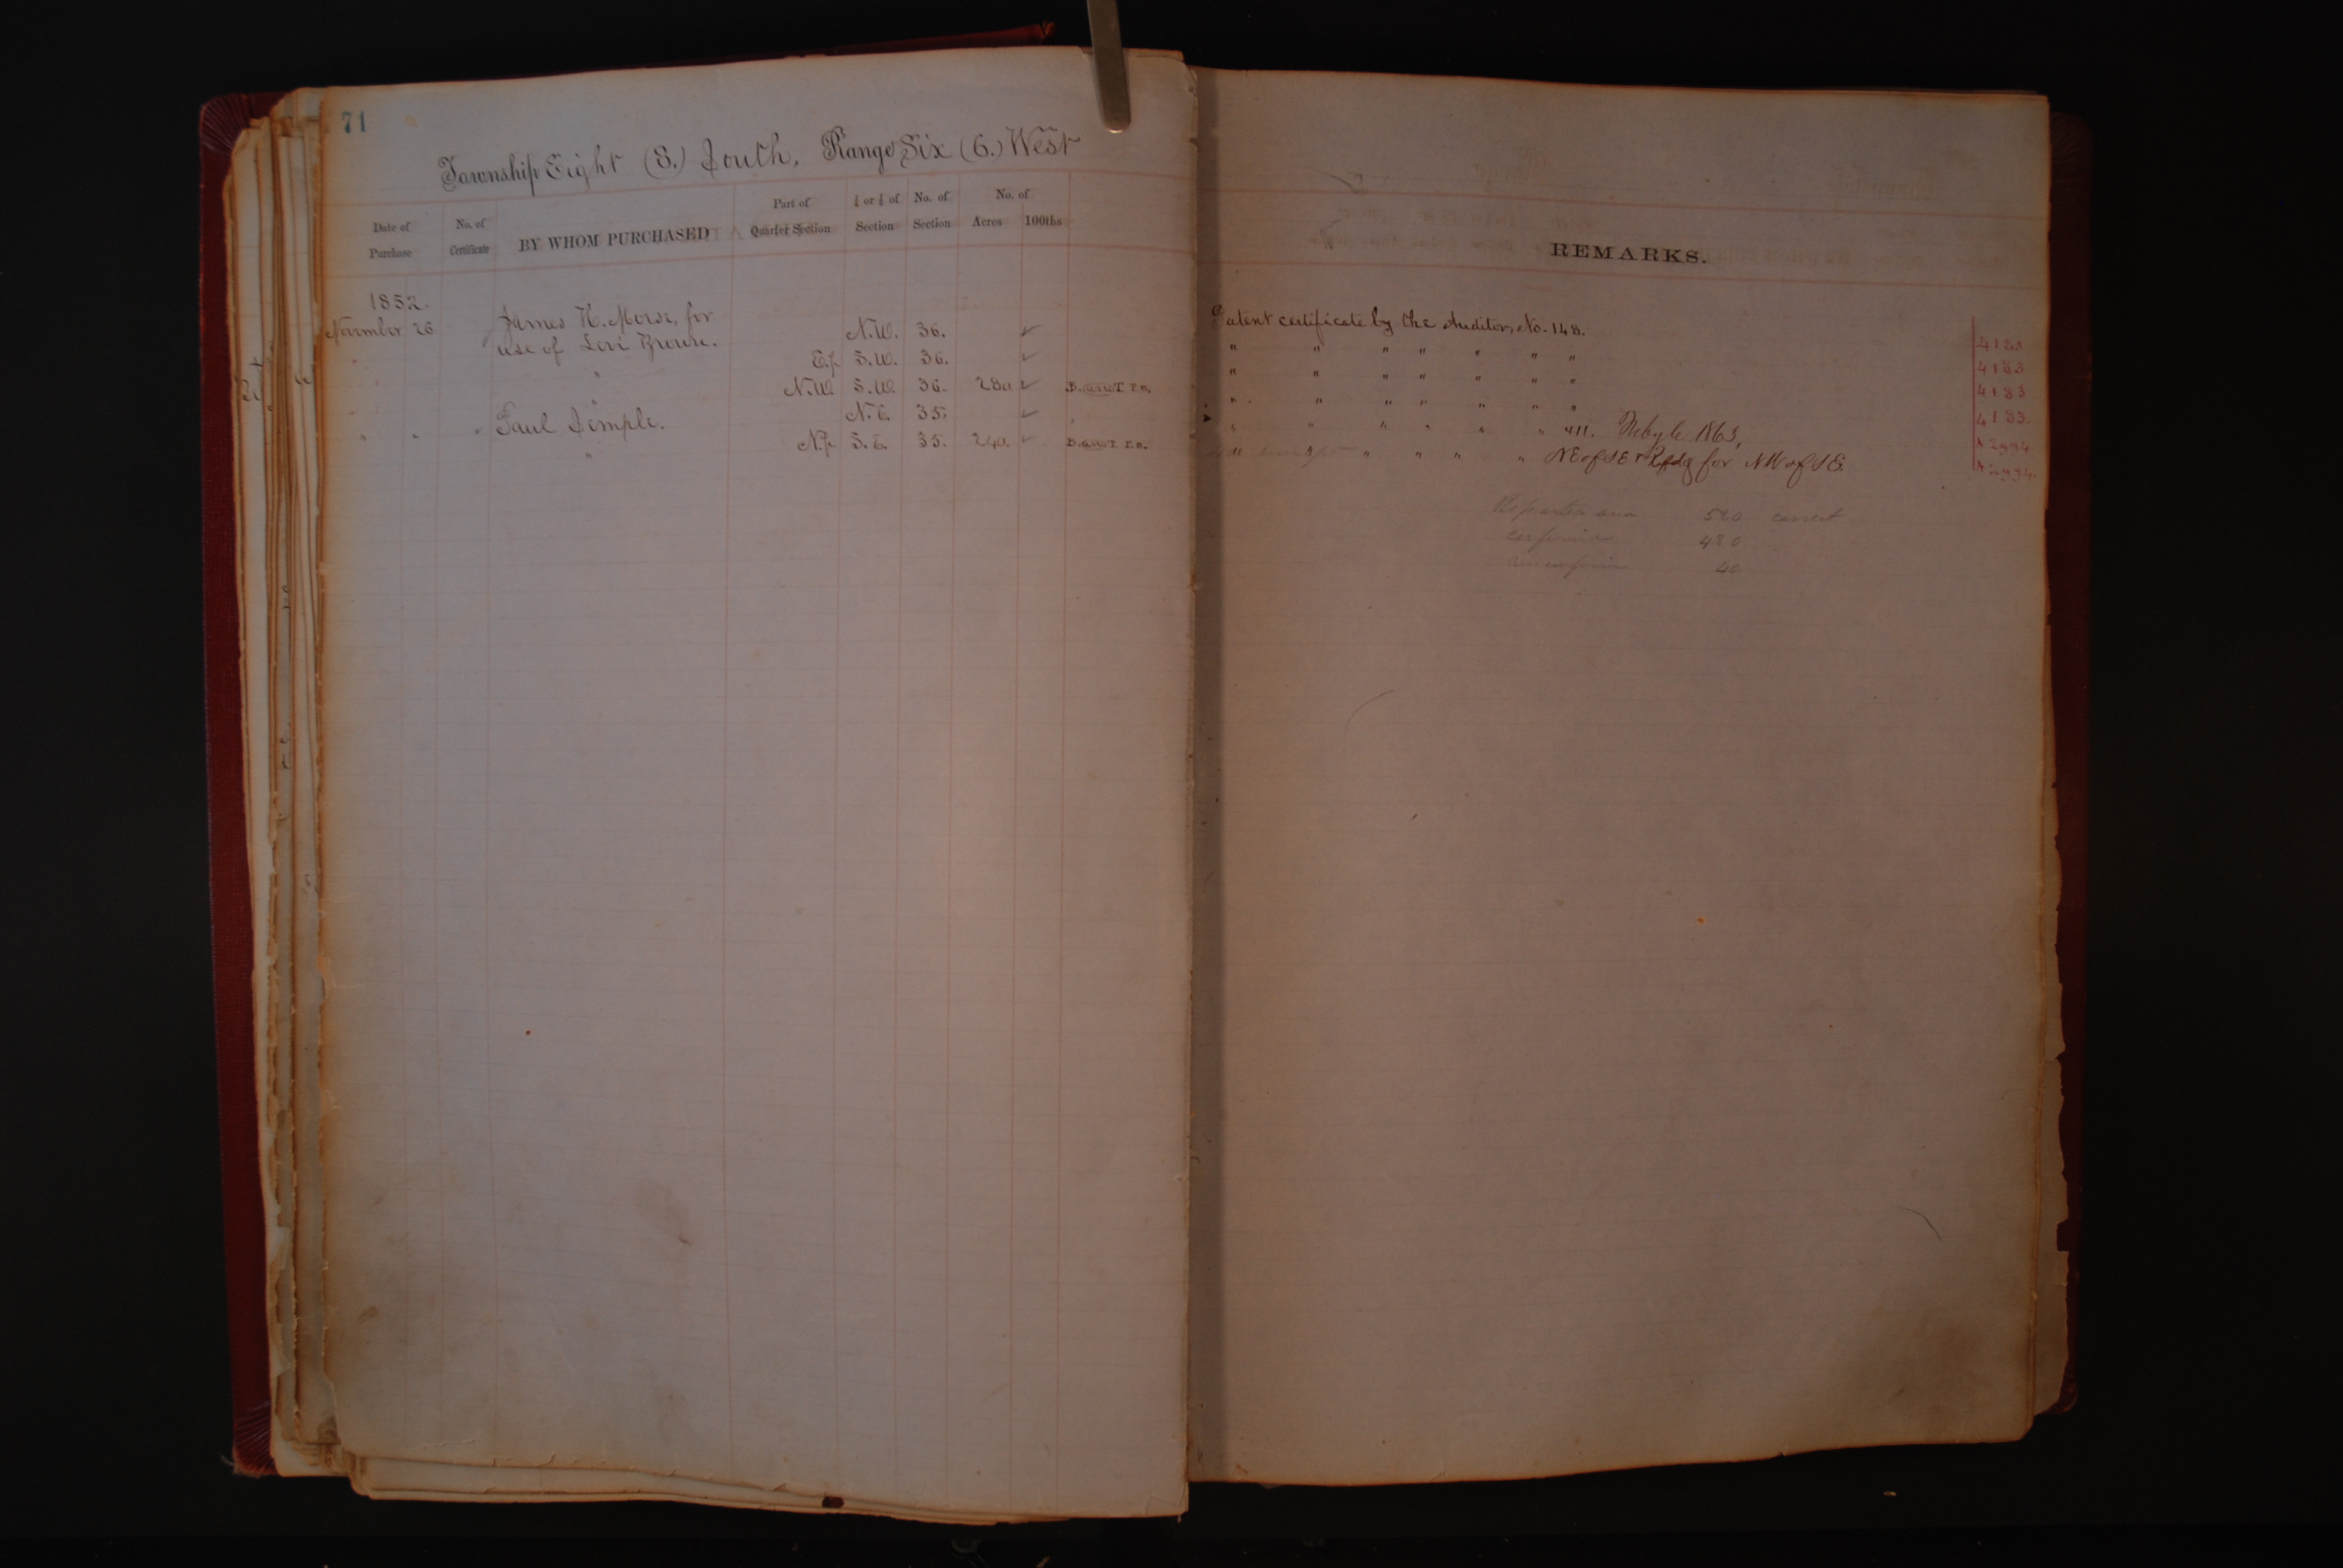 71
Township Eight (8.) South, Range Six (6.) West
Date of Purchase No. of Certificate BY WHOM PURCHASED Part of Quarter Section ¼ or ½ of Section No. of Section No. of Acres 100ths
REMARKS.
1852.
November 26 James H. Morse, for N.W. 36. ✓ Patent certificate by the Auditor, No. 148. 4183
use of Levi Brown. E.½ S.W. 36. ✓ " " " " " " " 4183
" N.W. S.W. 36. 280 ✓ " " " " " " " 4183
" N.E. 35. ✓ " " " " " " " 4183.
" " " Paul Semple. N.½ S.E. 35. 240. ✓ " " " " " " 411. 1863, 2994
" " " " " " " NE of SE & for NW of SE. 2994.
520 correct
480
40